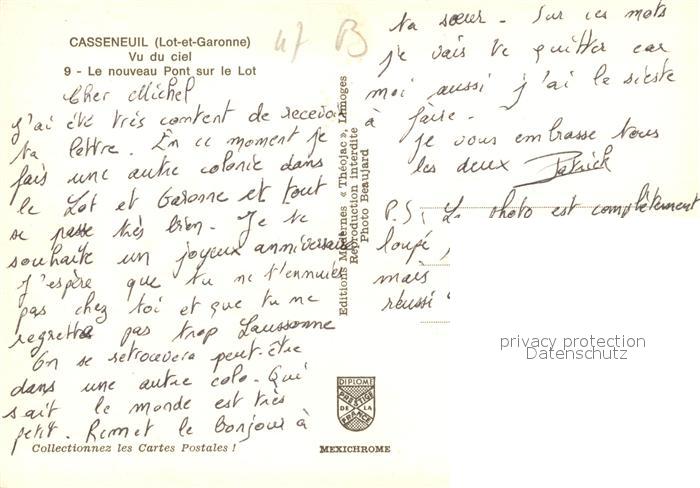 CASSENEUIL (Lot-et-Garonne)
Vu du ciel
9 - Le nouveau Pont sur le Lot
47 B
Cher Michel
J'ai été très content de recevoir
ta lettre. En ce moment je
fais une autre colonie dans
le Lot et Garonne et tout
se passe très bien. Je te
souhaite un joyeux anniversaire
J'espère que tu ne t'ennuies
pas chez toi et que tu ne
regrettes pas trop Laussonne
On se retrouvera peut-être
dans une autre colo. Qui
sait le monde est très
petit. Remet le bonjour à
Collectionnez les Cartes Postales !
Editions Modernes « Théojac », Limoges
Reproduction interdite
Photo Beaujard
DIPLOME
PRESTIGE
DE LA
FRANCE
MEXICHROME
ta sœur. Sur ces mots
je vais te quitter car
moi aussi j'ai la sieste
à faire.
Je vous embrasse tous
les deux Patrick
P.S. La photo est complètement
loupé,
mais
réussi
privacy protection
Datenschutz